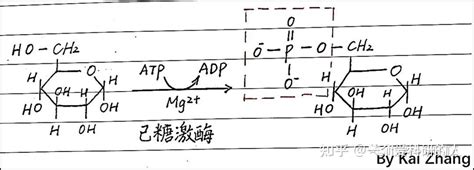 O
HO–CH₂
ATP ADP
O⁻–P–O–CH₂
O⁻
H O H
H
OH H
HO OH
H OH
Mg²⁺
己糖激酶
H O H
H
OH H
HO OH
H OH
知乎
By Kai Zhang